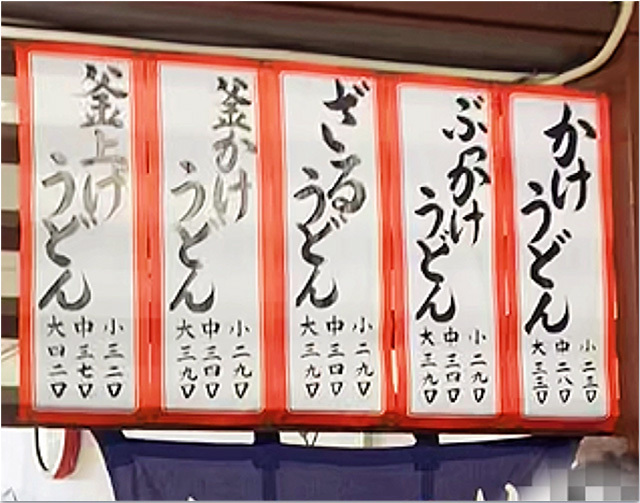 かけ
うどん
小 二三〇
中 二八〇
大 三三〇
ぶっかけ
うどん
小 二九〇
中 三四〇
大 三九〇
ざる
うどん
小 二九〇
中 三四〇
大 三九〇
釜かけ
うどん
小 二九〇
中 三四〇
大 三九〇
釜上げ
うどん
小 三二〇
中 三七〇
大 四二〇